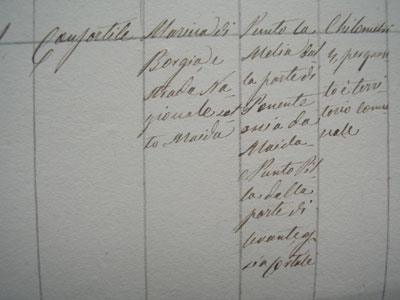 Confortile
Marina di
Borgia e
strada Na-
zionale sot-
to Maida
Punto la
Melia dal
la parte di
Ponente
ossia da
Maida
Punto Pil-
la dalla
parte di
levante os
sia Cortale
Chilometri
to è terri
torio comu
nale